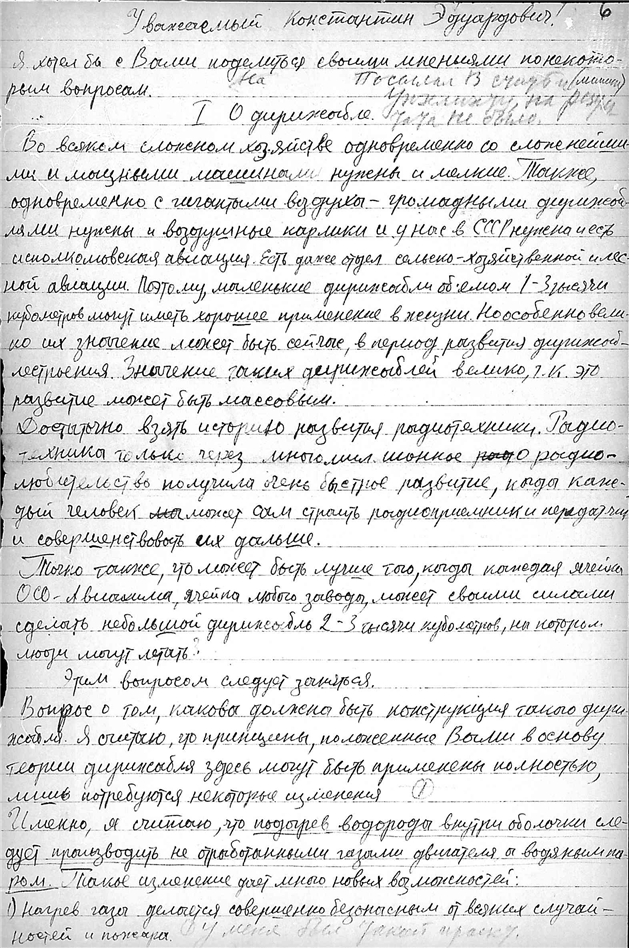 6
Уважаемый Константин Эдуардович!
Я хотел бы с Вами поделиться своими мнениями по некото-
рым вопросам.
I О дирижабле.
Во всяком сложном хозяйстве одновременно со сложнейши-
ми и мощными машинами нужны и мелкие. Также,
одновременно с гигантами воздуха – громадными дирижаб-
лями нужны и воздушные карлики и у нас в СССР нужна и есть
исполкомовская авиация. Есть даже отдел сельско-хозяйственной и лес-
ной авиации. Поэтому, маленькие дирижабли об'емом 1-3 тысячи
кубометров могут иметь хорошее применение в жизни. Но особенно вели-
ко их значение может быть сейчас, в период развития дирижаб-
лестроения. Значение таких дирижаблей велико, т.к. это
развитие может быть массовым.
Достаточно взять историю развития радиотехники. Радио-
техника только через многомиллионное радио-
любительство получила очень быстрое развитие, когда каж-
дый человек может сам строить радиоприемники и передатчики
и совершенствовать их дальше.
Точно также, что может быть лучше того, когда каждая ячейка
ОСО-Авиахима, ячейка любого завода, может своими силами
сделать небольшой дирижабль 2-3 тысячи кубометров, на котором
люди могут летать?
Этим вопросом следует заняться.
Вопрос о том, какова должна быть конструкция такого дири-
жабля. Я считаю, что принципы, положенные Вами в основу
теории дирижабля здесь могут быть применены полностью,
лишь потребуются некоторые изменения 1
Именно, я считаю, что подогрев водорода внутри оболочки сле-
дует производить не отработанными газами двигателя а водяным па-
ром. Такое изменение дает много новых возможностей:
1) нагрев газа делается совершенно безопасным от всяких случай-
ностей и пожара. У меня был такой